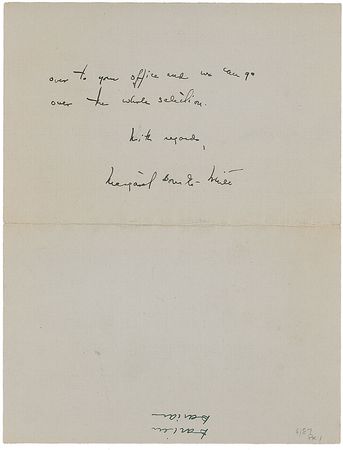 over to your office and we can go
over the whole selection.
With regards,
Margaret Bourke-White
Darien
Darien